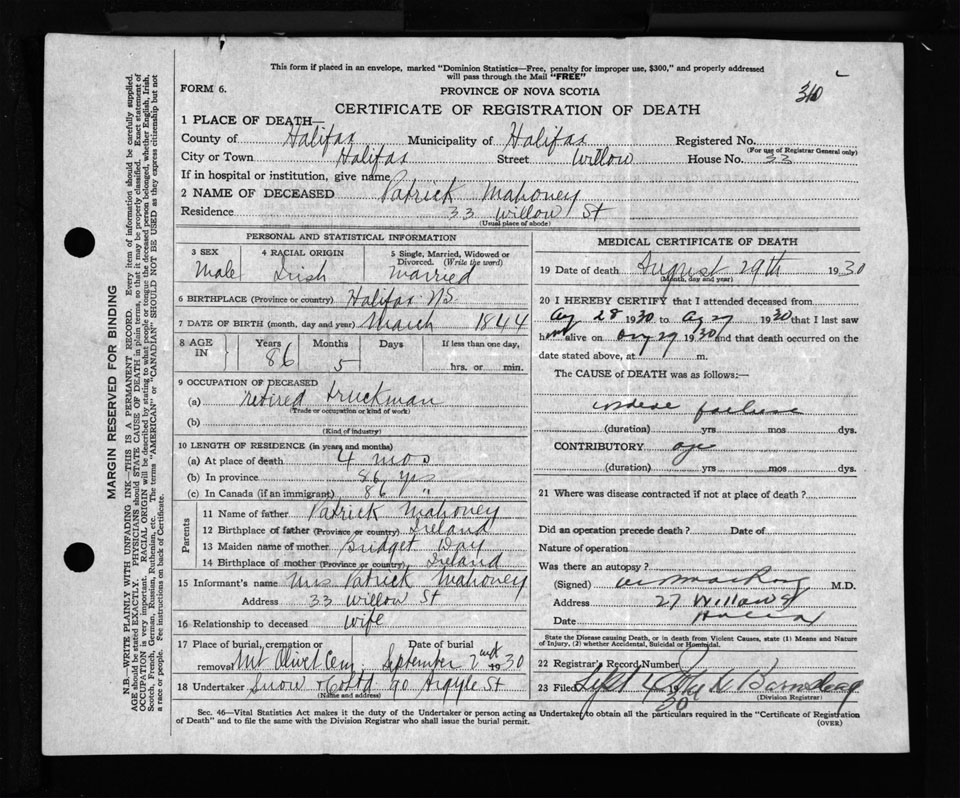 This form if placed in an envelope, marked "Dominion Statistics—Free, penalty for improper use, $300," and properly addressed
will pass through the Mail "FREE"
FORM 6.
PROVINCE OF NOVA SCOTIA
310
CERTIFICATE OF REGISTRATION OF DEATH
1 PLACE OF DEATH—
County of Halifax Municipality of Halifax Registered No.
(For use of Registrar General only)
City or Town Halifax Street Willow House No. 33
If in hospital or institution, give name
2 NAME OF DECEASED Patrick Mahoney
Residence 33 Willow St
(Usual place of abode)
PERSONAL AND STATISTICAL INFORMATION
3 SEX 4 RACIAL ORIGIN 5 Single, Married, Widowed or
Divorced. (Write the word)
Male Irish Married
6 BIRTHPLACE (Province or country) Halifax N.S.
7 DATE OF BIRTH (month, day and year) March 1844
8 AGE IN Years Months Days If less than one day,
86 5 hrs. or min.
9 OCCUPATION OF DECEASED
(a) retired truckman
(Trade or occupation or kind of work)
(b)
(Kind of industry)
10 LENGTH OF RESIDENCE (in years and months)
(a) At place of death 4 mos
(b) In province 86 yrs
(c) In Canada (if an immigrant) 86 "
Parents
11 Name of father Patrick Mahoney
12 Birthplace of father (Province or country) Ireland
13 Maiden name of mother Bridget Day
14 Birthplace of mother (Province or country) Ireland
15 Informant's name Mrs Patrick Mahoney
Address 33 Willow St
16 Relationship to deceased Wife
17 Place of burial, cremation or Date of burial
removal Mt Olivet Cem. September 2nd 1930
18 Undertaker Snow & Co Ltd 90 Argyle St
MEDICAL CERTIFICATE OF DEATH
19 Date of death August 29th 1930
(Month, day and year)
20 I HEREBY CERTIFY that I attended deceased from
Aug 28 1930 to Aug 29 1930 that I last saw
him alive on Aug 29 1930 and that death occurred on the
date stated above, at m.
The CAUSE of DEATH was as follows:—
failure
(duration) yrs mos dys.
CONTRIBUTORY age
(duration) yrs mos dys.
21 Where was disease contracted if not at place of death?
Did an operation precede death? Date of
Nature of operation
Was there an autopsy?
(Signed) M.D.
Address 27 Willow St
Date
State the Disease causing Death, or in death from Violent Causes, state (1) Means and Nature
of Injury, (2) whether Accidental, Suicidal or Homicidal.
22 Registrar's Record Number
23 Filed Sept 4 1930
(Division Registrar)
Sec. 46—Vital Statistics Act makes it the duty of the Undertaker or person acting as Undertaker to obtain all the particulars required in the "Certificate of Registration
of Death" and to file the same with the Division Registrar who shall issue the burial permit.
(OVER)
MARGIN RESERVED FOR BINDING
N.B.—WRITE PLAINLY WITH UNFADING INK—THIS IS A PERMANENT RECORD. Every item of information should be carefully supplied.
AGE should be stated EXACTLY. PHYSICIANS should STATE CAUSE OF DEATH in plain terms, so that it may be properly classified. Exact statement of
OCCUPATION is very important. RACIAL ORIGIN will be described by stating what people or tongue the deceased person belonged, whether English, Irish,
Scotch, French, German, Russian, Ruthenian, etc. The terms "AMERICAN" or "CANADIAN" SHOULD NOT BE USED as they express citizenship but not
a race or people. See instructions on back of Certificate.